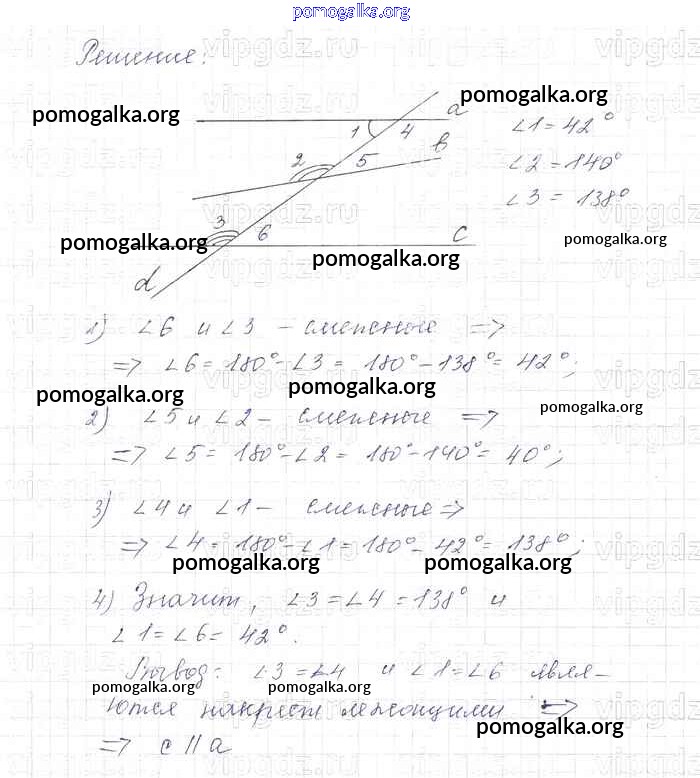 pomogalka.org
Решение:
pomogalka.org
pomogalka.org
a
1 4
∠1 = 42°
b
2 5
∠2 = 140°
∠3 = 138°
3 6
pomogalka.org
pomogalka.org
c
pomogalka.org
d
1) ∠6 и ∠3 – смежные =>
=> ∠6 = 180° - ∠3 = 180° - 138° = 42°;
pomogalka.org
pomogalka.org
pomogalka.org
2) ∠5 и ∠2 – смежные =>
=> ∠5 = 180° - ∠2 = 180° - 140° = 40°;
3) ∠4 и ∠1 – смежные =>
=> ∠4 = 180° - ∠1 = 180° - 42° = 138°;
pomogalka.org
pomogalka.org
4) Значит, ∠3 = ∠4 = 138° и
∠1 = ∠6 = 42°.
Вывод: ∠3 = ∠4 и ∠1 = ∠6 явля-
pomogalka.org
pomogalka.org
ются накрест лежащими =>
pomogalka.org
=> c || a